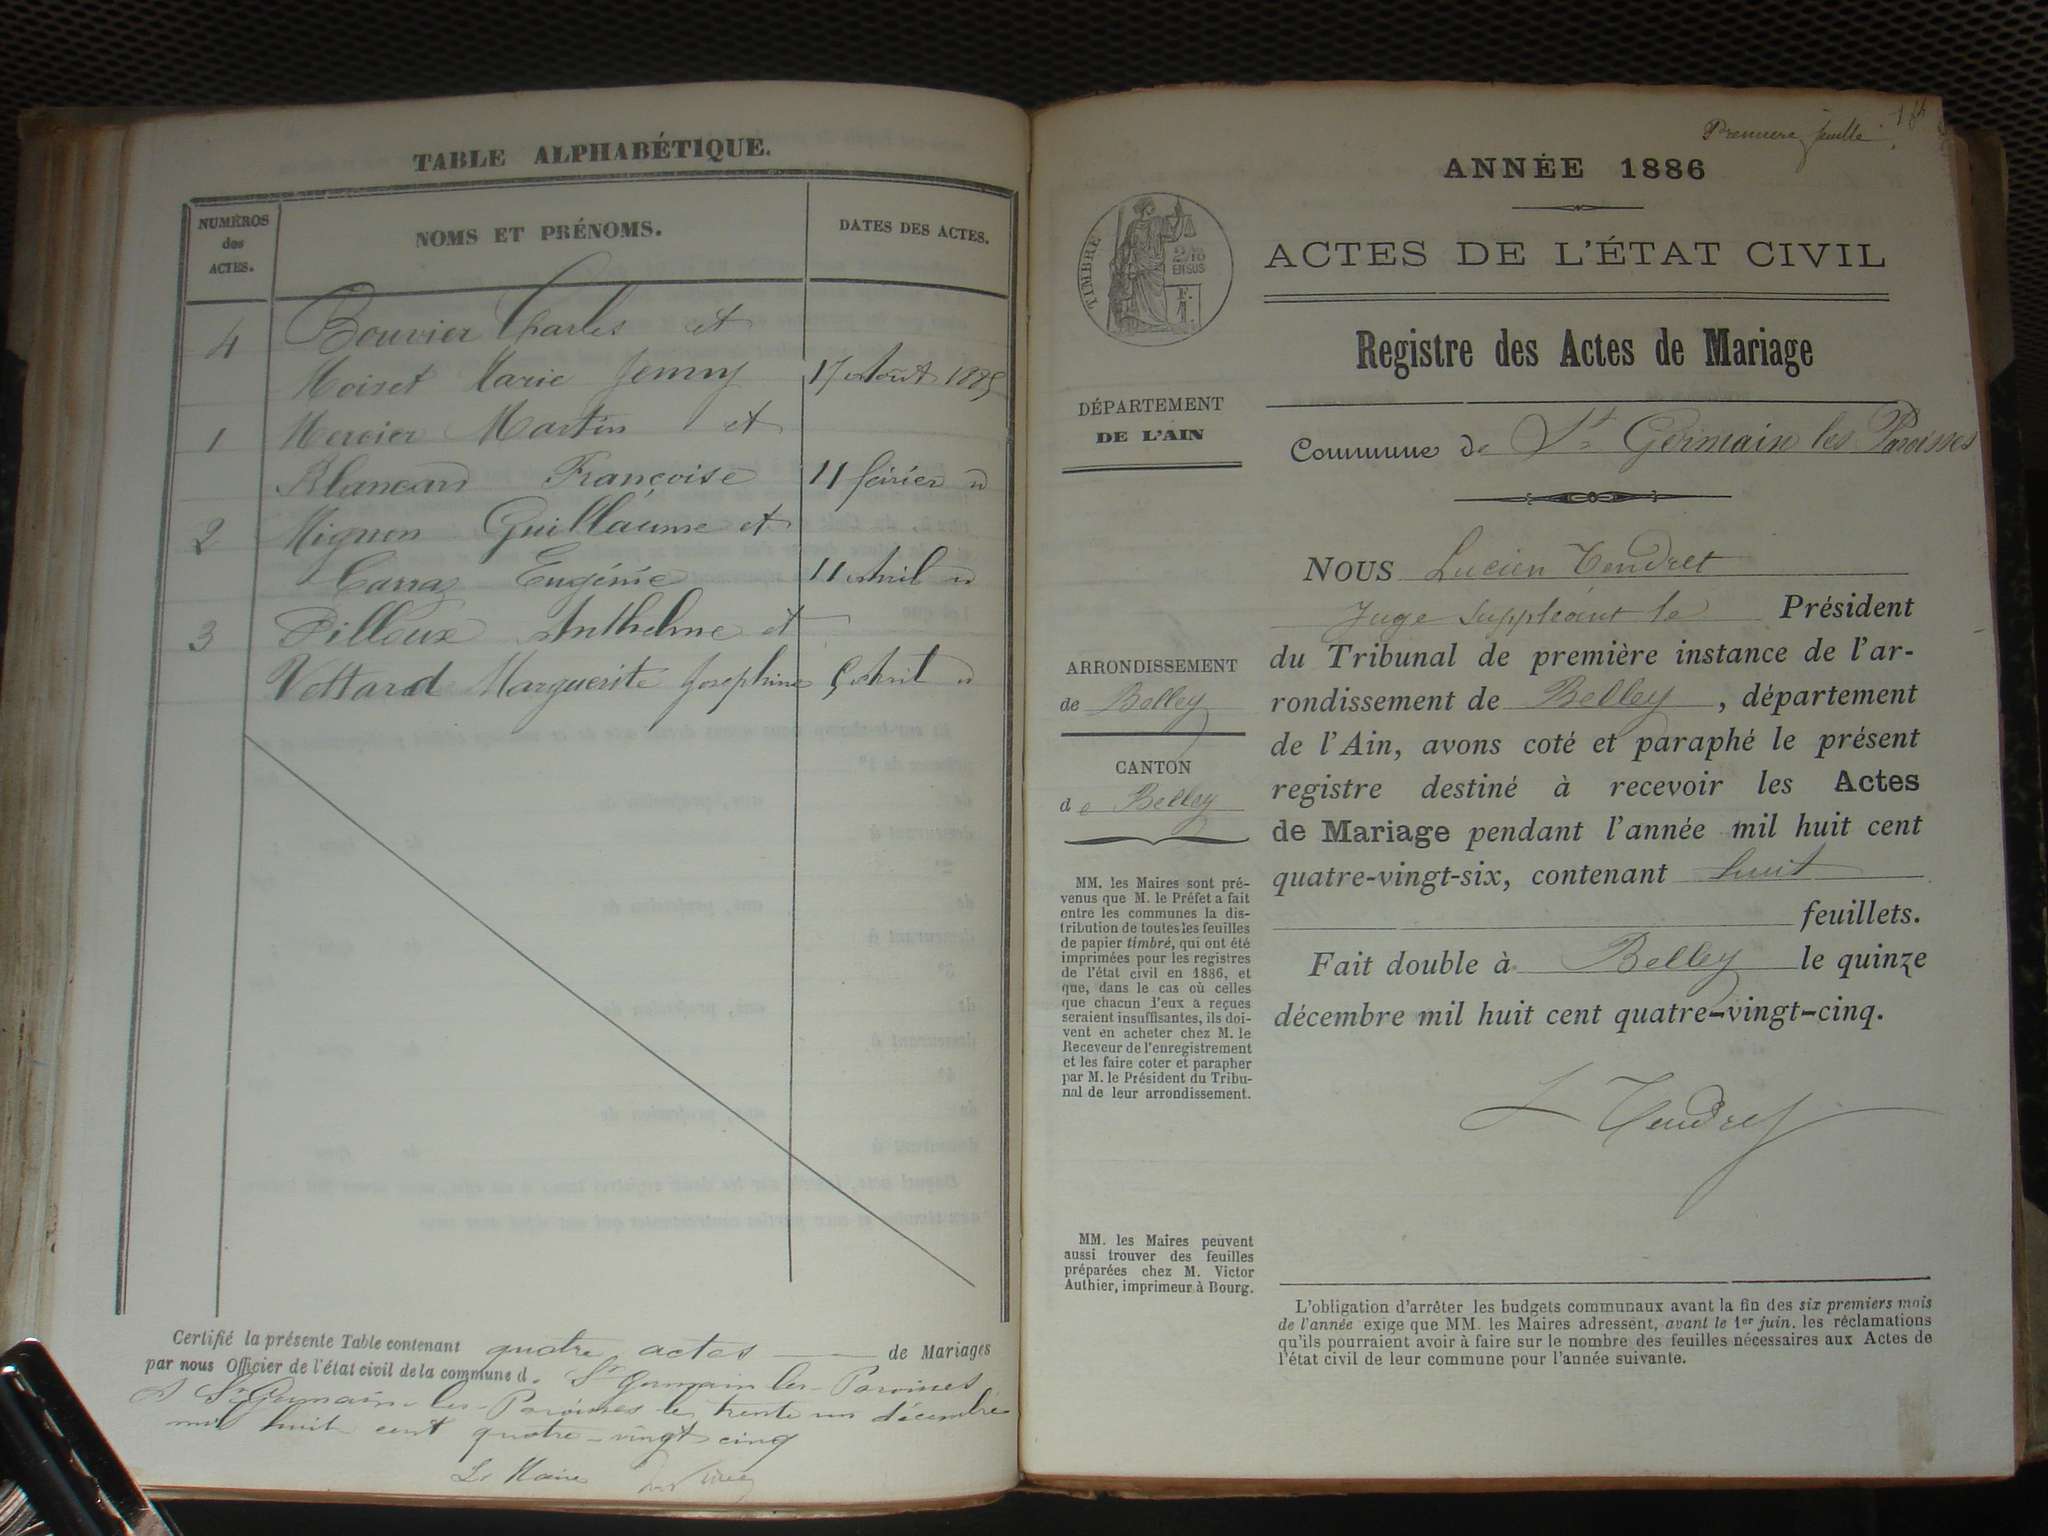 TABLE ALPHABÉTIQUE.
NUMÉROS
des
ACTES.
NOMS ET PRÉNOMS.
DATES DES ACTES.
4 Bouvier Charles et
Moiret Marie Jenny 17 Août 1885
1 Mercier Martin et
Blancard Françoise 11 février "
2 Mignon Guillaume et
Carraz Eugénie 11 Avril "
3 Pilloux Anthelme et
Vettard Marguerite Joséphine Avril "
Certifié la présente Table contenant quatre actes de Mariages
par nous Officier de l'état civil de la commune d. St Germain les Paroisses
A St Germain-les-Paroisses le trente un décembre
mil huit cent quatre-vingt cinq
Le Maire
Première feuille
ANNÉE 1886
ACTES DE L'ÉTAT CIVIL
TIMBRE
2/10
EN SUS
F.
Registre des Actes de Mariage
Commune de St Germain les Paroisses
DÉPARTEMENT
DE L'AIN
ARRONDISSEMENT
de Belley
CANTON
de Belley
MM. les Maires sont pré-
venus que M. le Préfet a fait
entre les communes la dis-
tribution de toutes les feuilles
de papier timbré, qui ont été
imprimées pour les registres
de l'état civil en 1886, et
que, dans le cas où celles
que chacun d'eux a reçues
seraient insuffisantes, ils doi-
vent en acheter chez M. le
Receveur de l'enregistrement
et les faire coter et parapher
par M. le Président du Tribu-
nal de leur arrondissement.
MM. les Maires peuvent
aussi trouver des feuilles
préparées chez M. Victor
Authier, imprimeur à Bourg.
NOUS Lucien Tendret
Juge Suppléant le Président
du Tribunal de première instance de l'ar-
rondissement de Belley, département
de l'Ain, avons coté et paraphé le présent
registre destiné à recevoir les Actes
de Mariage pendant l'année mil huit cent
quatre-vingt-six, contenant huit
feuillets.
Fait double à Belley le quinze
décembre mil huit cent quatre-vingt-cinq.
L Tendret
L'obligation d'arrêter les budgets communaux avant la fin des six premiers mois
de l'année exige que MM. les Maires adressent, avant le 1er juin, les réclamations
qu'ils pourraient avoir à faire sur le nombre des feuilles nécessaires aux Actes de
l'état civil de leur commune pour l'année suivante.